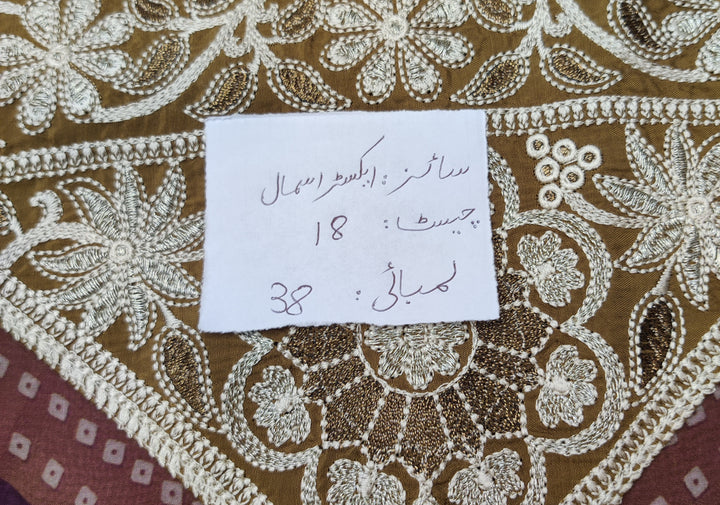 سائز: ایکسٹرا سمال
چیسٹ: 18
لمبائی: 38